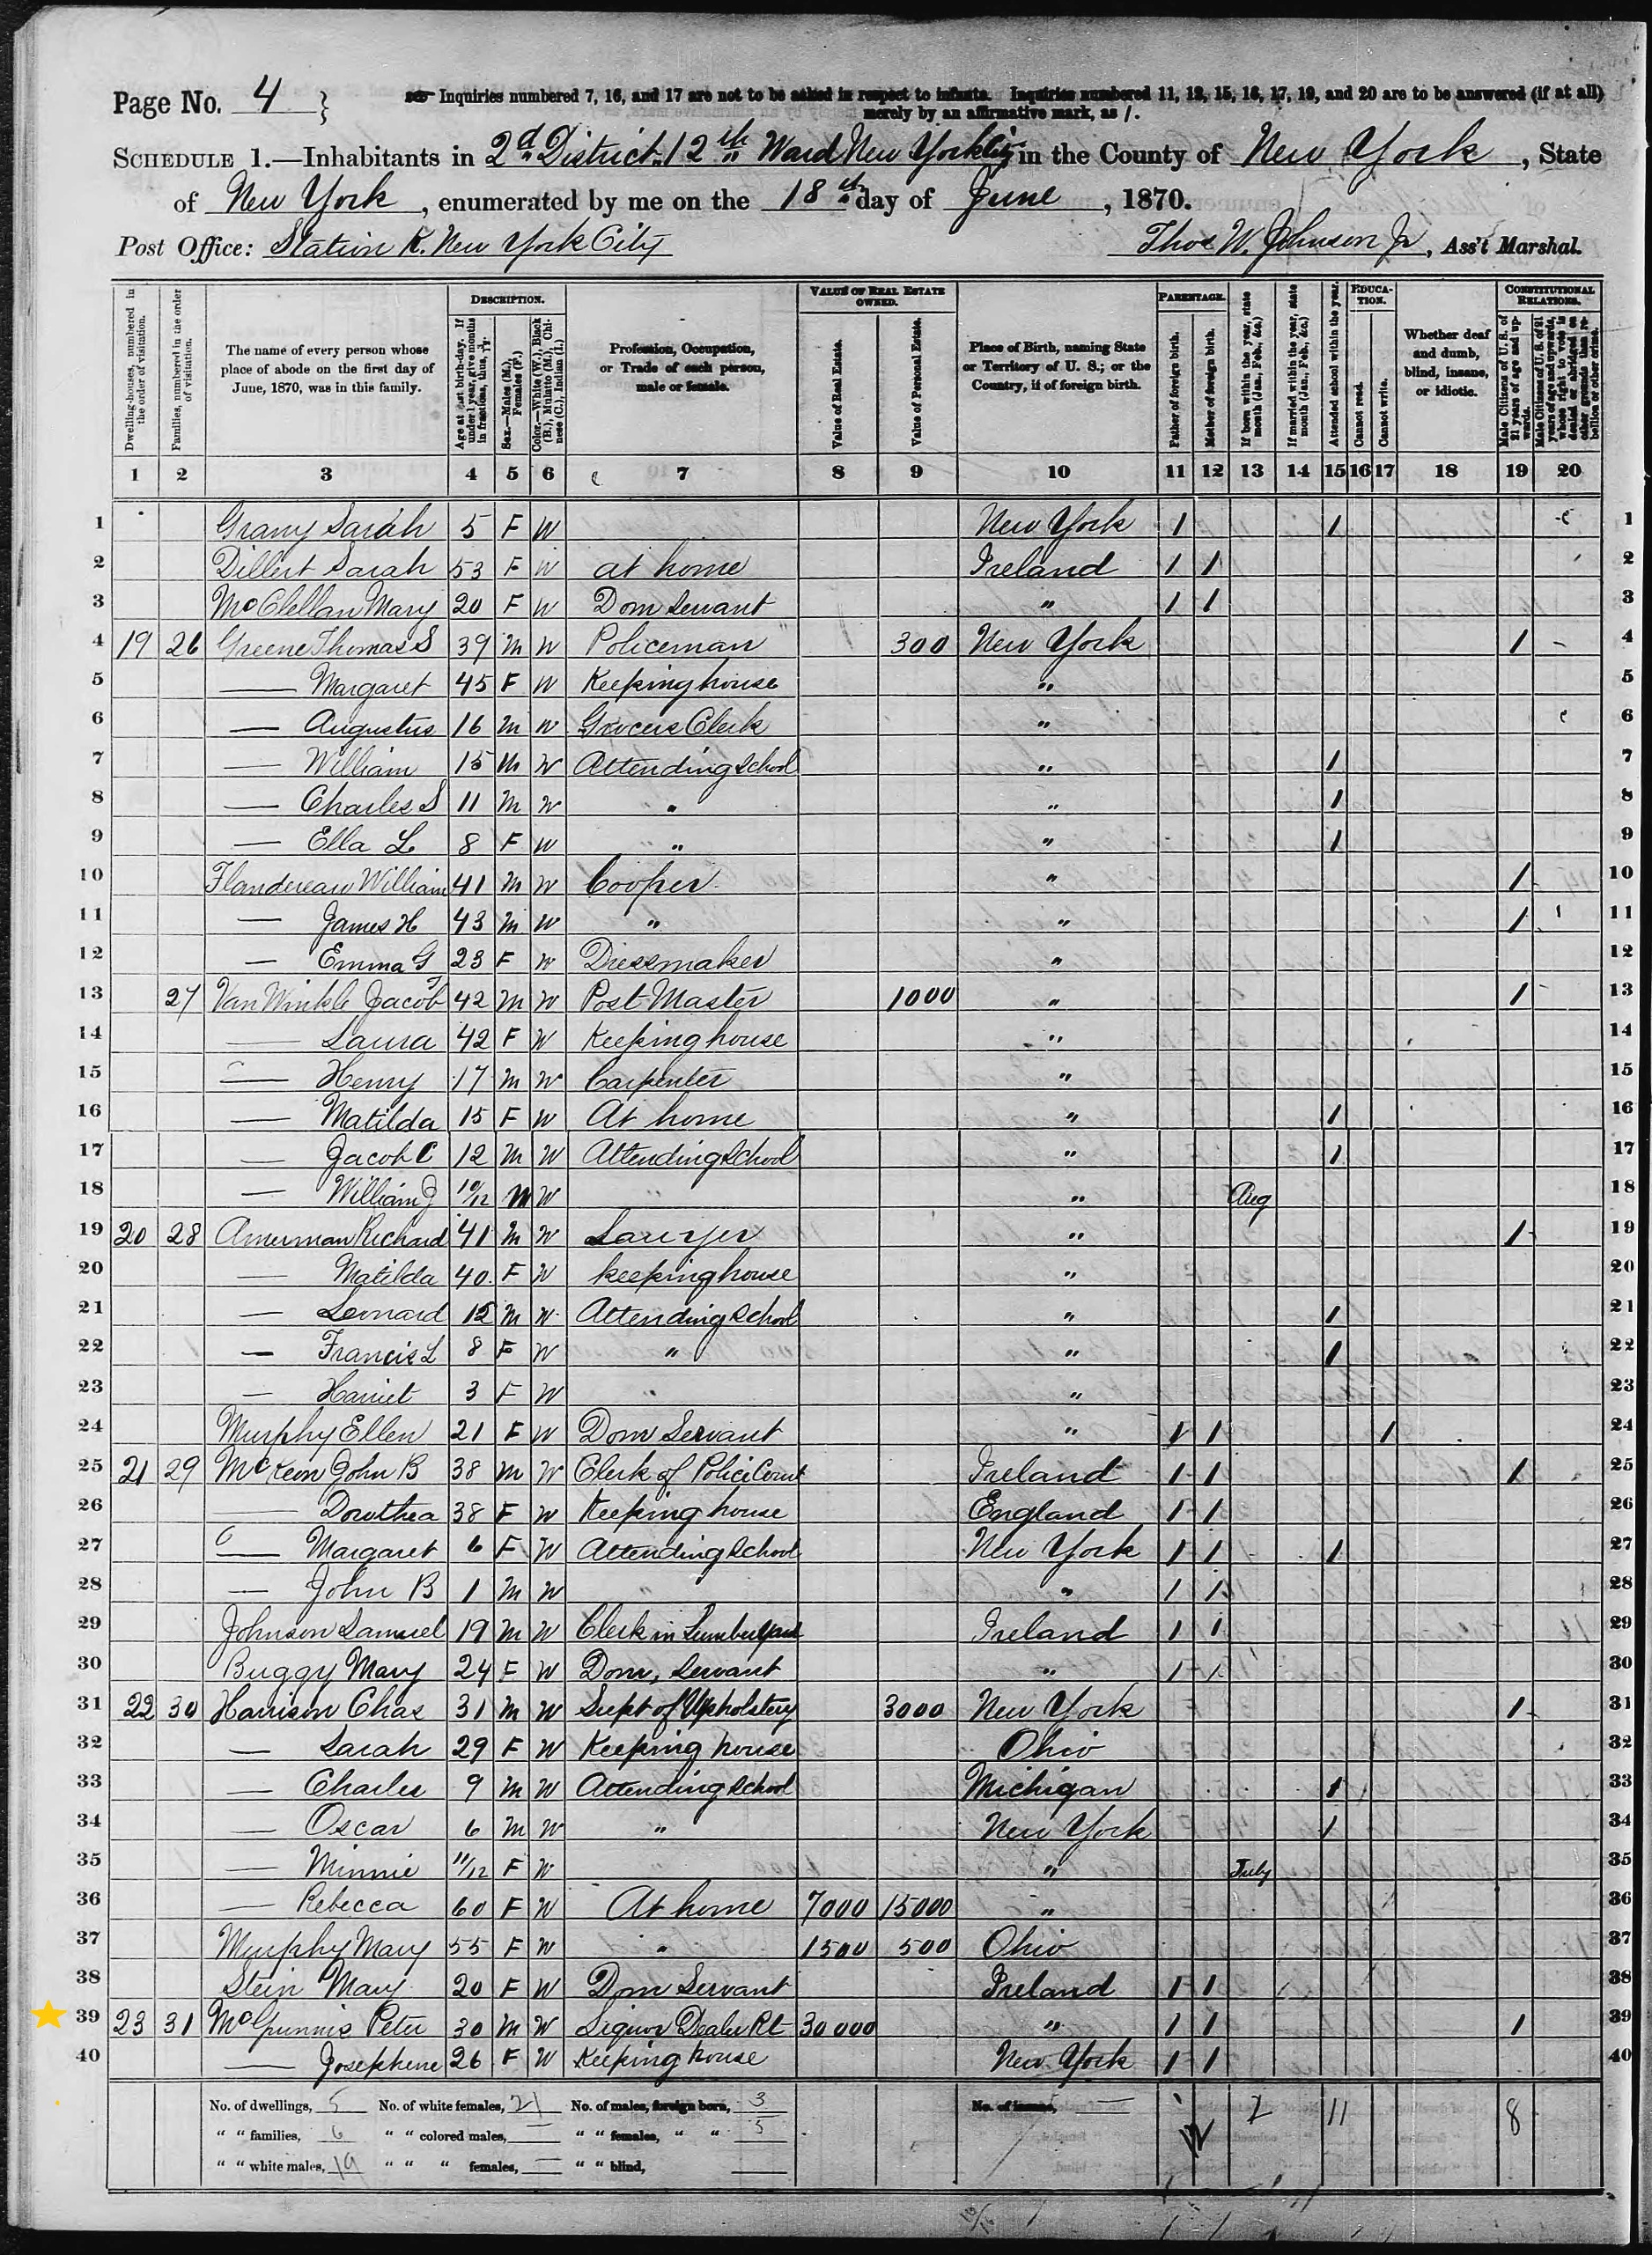 Page No. 4 }
Inquiries numbered 7, 16, and 17 are not to be asked in respect to infants. Inquiries numbered 11, 12, 15, 16, 17, 19, and 20 are to be answered (if at all)
merely by an affirmative mark, as /.
SCHEDULE 1.—Inhabitants in 2d District 12th Ward New York City in the County of New York, State
of New York, enumerated by me on the 18th day of June, 1870.
Post Office: Station K. New York City Thos W. Johnson Jr, Ass't Marshal.
DESCRIPTION. VALUE OF REAL ESTATE OWNED. PARENTAGE. EDUCATION. CONSTITUTIONAL RELATIONS.
Dwelling-houses, numbered in the order of visitation.
Families, numbered in the order of visitation.
The name of every person whose place of abode on the first day of June, 1870, was in this family.
Age at last birth-day. If under 1 year, give months in fractions, thus,
Sex.—Males (M.), Females (F.)
Color.—White (W.), Black (B.), Mulatto (M.), Chinese (C.), Indian (I.)
Profession, Occupation, or Trade of each person, male or female.
Value of Real Estate.
Value of Personal Estate.
Place of Birth, naming State or Territory of U. S.; or the Country, if of foreign birth.
Father of foreign birth.
Mother of foreign birth.
If born within the year, state month (Jan., Feb., &c.)
If married within the year, state month (Jan., Feb., &c.)
Attended school within the year.
Cannot read.
Cannot write.
Whether deaf and dumb, blind, insane, or idiotic.
Male Citizens of U. S. of 21 years of age and upwards.
Male Citizens of U. S. of 21 years of age and upwards, whose right to vote is denied or abridged on other grounds than rebellion or other crime.
1 2 3 4 5 6 7 8 9 10 11 12 13 14 15 16 17 18 19 20
1 Sarah 5 F W New York 1 1 1
2 Dillert Sarah 53 F W at home Ireland 1 1 2
3 McClellan Mary 20 F W Dom Servant " 1 1 3
4 19 26 Greene Thomas S 39 M W Policeman 300 New York 1 4
5 — Margaret 45 F W Keeping house " 5
6 — Augustus 16 M W Grocers Clerk " 6
7 — William 15 M W Attending School " 1 7
8 — Charles S 11 M W " " 1 8
9 — Ella L 8 F W " " 1 9
10 Flandereau William 41 M W Cooper " 1 10
11 — James H 43 M W " " 1 11
12 — Emma G 23 F W Dressmaker " 12
13 27 Van Winkle Jacob 42 M W Post Master 1000 " 1 13
14 — Laura 42 F W Keeping house " 14
15 — Henry 17 M W Carpenter " 15
16 — Matilda 15 F W At home " 1 16
17 — Jacob C 12 M W Attending School " 1 17
18 — William J 10/12 M W " Aug 18
19 20 28 Amerman Richard 41 M W Lawyer " 1 19
20 — Matilda 40 F W keeping house " 20
21 — Leonard 15 M W Attending School " 1 21
22 — Francis L 8 F W " " 1 22
23 — Harriet 3 F W " 23
24 Murphy Ellen 21 F W Dom Servant " 1 1 1 24
25 21 29 McKeon John B 38 M W Clerk of Police Court Ireland 1 1 1 25
26 — Dorothea 38 F W Keeping house England 1 1 26
27 — Margaret 6 F W Attending School New York 1 1 1 27
28 — John B 1 M W " 1 1 28
29 Johnson Samuel 19 M W Clerk in Lumber Yard Ireland 1 1 29
30 Buggy Mary 24 F W Dom, Servant " 1 1 30
31 22 30 Harrison Chas 31 M W Supt of Upholstery 3000 New York 1 31
32 — Sarah 29 F W Keeping house Ohio 32
33 — Charles 9 M W Attending School Michigan 1 33
34 — Oscar 6 M W " New York 1 34
35 — Minnie 11/12 F W " July 35
36 — Rebecca 60 F W At home 7000 15000 " 36
37 Murphy Mary 55 F W " 1500 500 Ohio 37
38 Stein Mary 20 F W Dom Servant Ireland 1 1 38
39 23 31 McGunnis Peter 30 M W Liquor Dealer Rt 30000 " 1 1 1 39
40 — Josephine 26 F W Keeping house New York 1 1 40
No. of dwellings, 5 No. of white females, 21 No. of males, foreign born, 3 No. of insane, — 12 2 11 8
" " families, 6 " " colored males, — " " females, " " 5
" " white males, 19 " " " females, — " " blind,